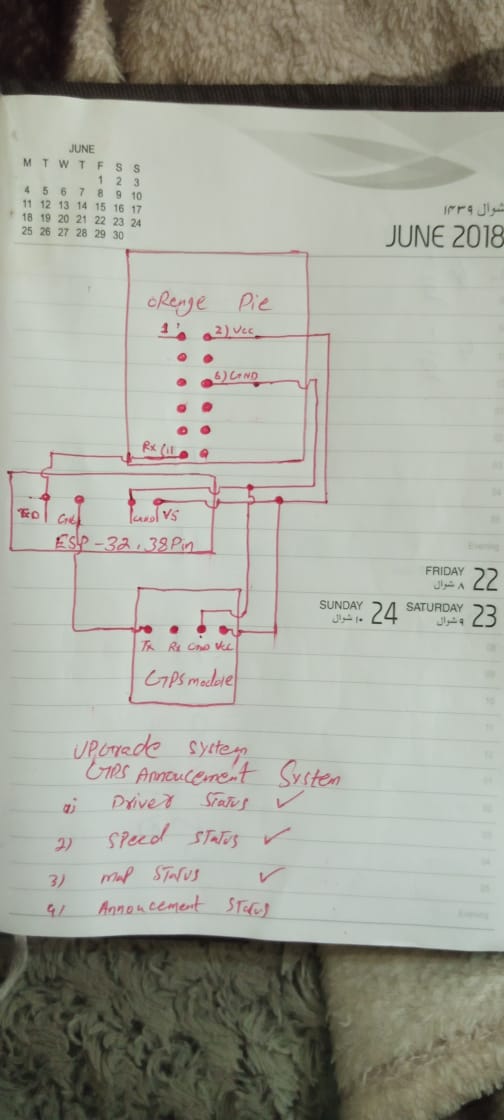 JUNE
M T W T F S S
1 2 3
4 5 6 7 8 9 10
11 12 13 14 15 16 17
18 19 20 21 22 23 24
25 26 27 28 29 30
شوال ١٤٣٩
JUNE 2018
oRenge Pie
1 2) Vcc
6) GND
Rx (11
GND V5
ESP-32, 38Pin
FRIDAY 22
٨ شوال
SUNDAY 24 SATURDAY 23
١٠ شوال ٩ شوال
Tx Rx GND Vcc
GPS module
UPGrade system
GPS Annoucement System
Driver STATUS ✓
2) SPeed STATUS ✓
3) map STATUS ✓
4) Annoucement STATUS
Evening